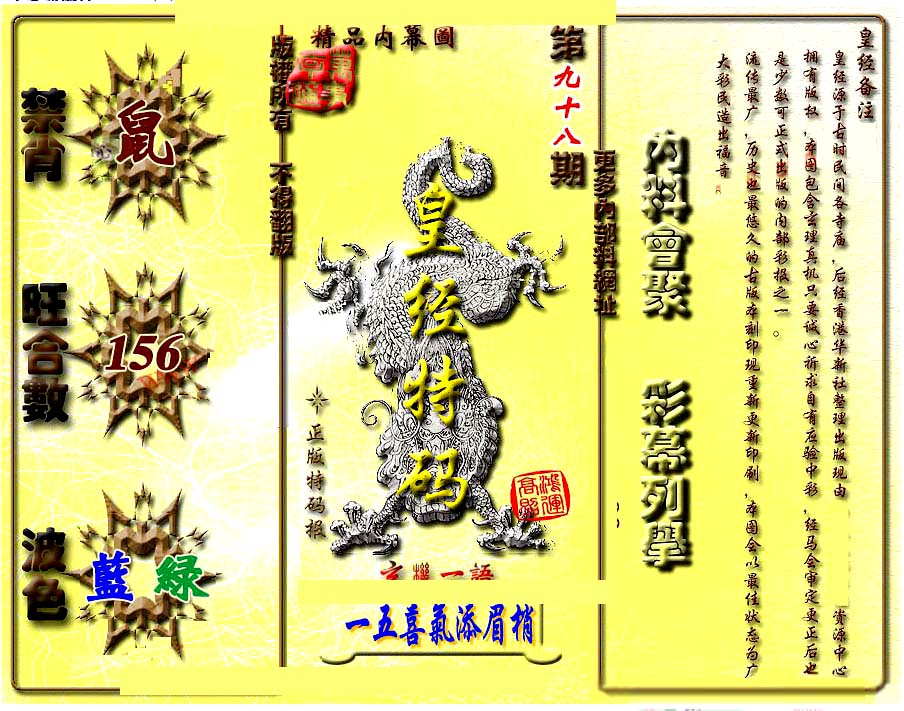 皇经备注
皇经源于古时民间各寺庙，后经香港华新社整理出版现由
资源中心
拥有版权，本图包含玄理真机只要诚心祈求自有应验中彩，经马会审定更正后也
是少数可正式出版的内部彩报之一。
流传最广，历史也最悠久的古版本刻印现重新更新印刷，本图会以最佳状态为广
大彩民造出福音
内料會聚
彩幕列舉
更多內部料網址
第九十八期
精品内幕圖
皇经特码
鴻運
高照
正版特码报
玄機一語
一五喜氣添眉梢
版權所有
不得翻版
禁肖
鼠
旺合數
156
波色
藍
綠